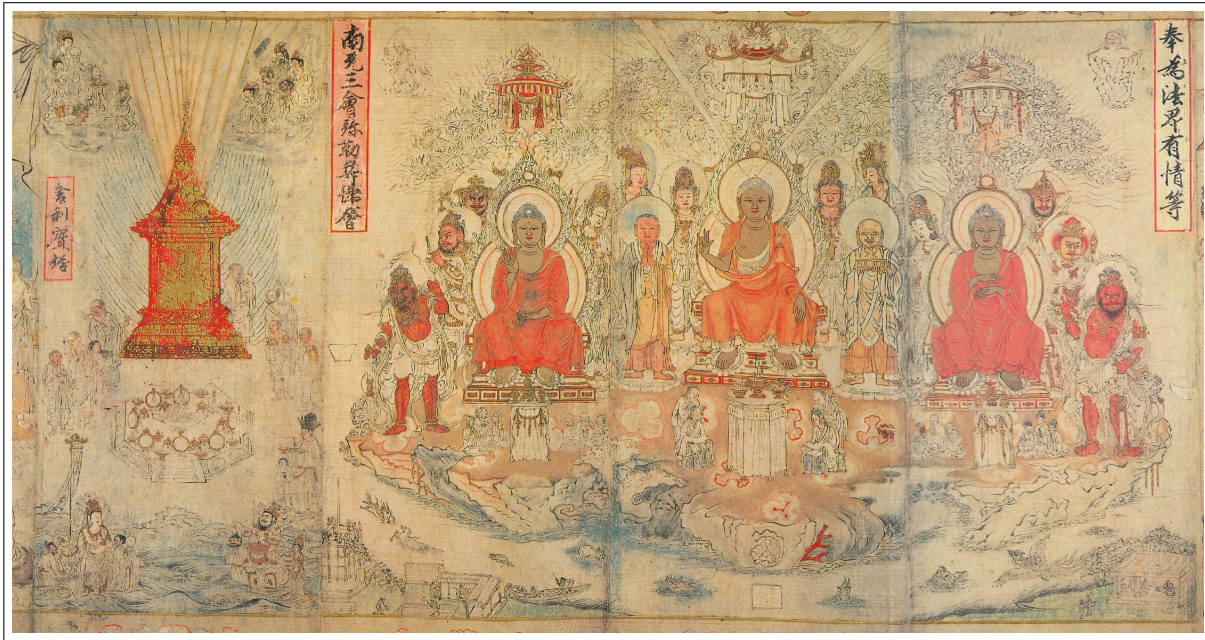 奉為法界有情等
南无三會弥勒尊佛會
舍利寶塔